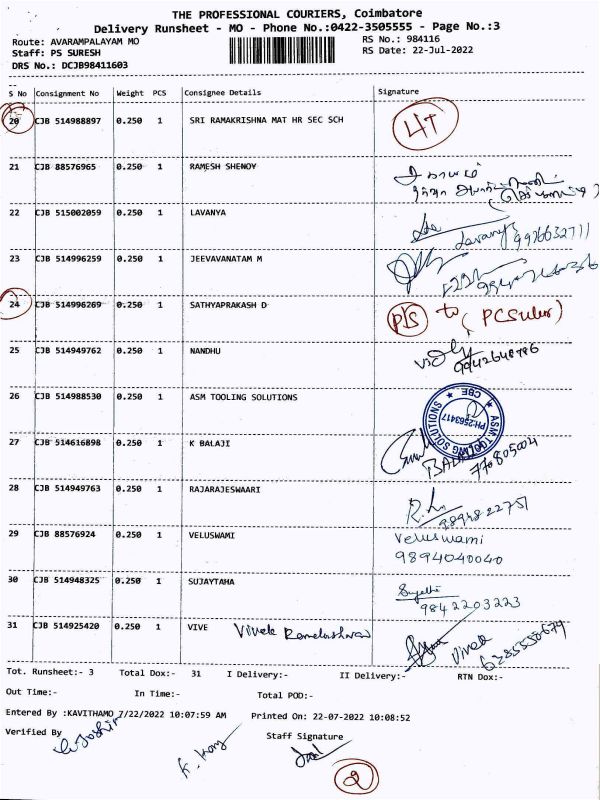 THE PROFESSIONAL COURIERS, Coimbatore
Delivery Runsheet - MO - Phone No.:0422-3505555 - Page No.:3
Route: AVARAMPALAYAM MO RS No.: 984116
Staff: PS SURESH RS Date: 22-Jul-2022
DRS No.: DCJB98411603
S No Consignment No Weight PCS Consignee Details Signature
20 CJB 514988897 0.250 1 SRI RAMAKRISHNA MAT HR SEC SCH
21 CJB 88576965 0.250 1 RAMESH SHENOY
22 CJB 515002059 0.250 1 LAVANYA
Lavanya 9976632711
23 CJB 514996259 0.250 1 JEEVAVANATAM M
24 CJB 514996269 0.250 1 SATHYAPRAKASH D to
25 CJB 514949762 0.250 1 NANDHU
9942648786
26 CJB 514988530 0.250 1 ASM TOOLING SOLUTIONS
ASM TOOLING SOLUTIONS
CBE
PH:2563417
27 CJB 514616898 0.250 1 K BALAJI
28 CJB 514949763 0.250 1 RAJARAJESWAARI
29 CJB 88576924 0.250 1 VELUSWAMI Veluswami
9894040040
30 CJB 514948325 0.250 1 SUJAYTAHA
9842203223
31 CJB 514925420 0.250 1 VIVE Vivek
Vivek
Tot. Runsheet:- 3 Total Dox:- 31 I Delivery:- II Delivery:- RTN Dox:-
Out Time:- In Time:- Total POD:-
Entered By :KAVITHAMO 7/22/2022 10:07:59 AM Printed On: 22-07-2022 10:08:52
Verified By Staff Signature
2